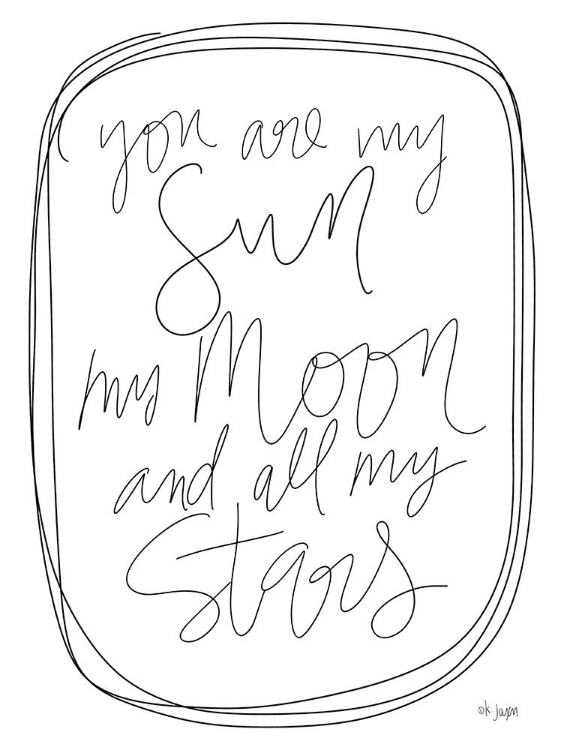 you are my
Sun
my Moon
and all my
Stars
©k. jaxn